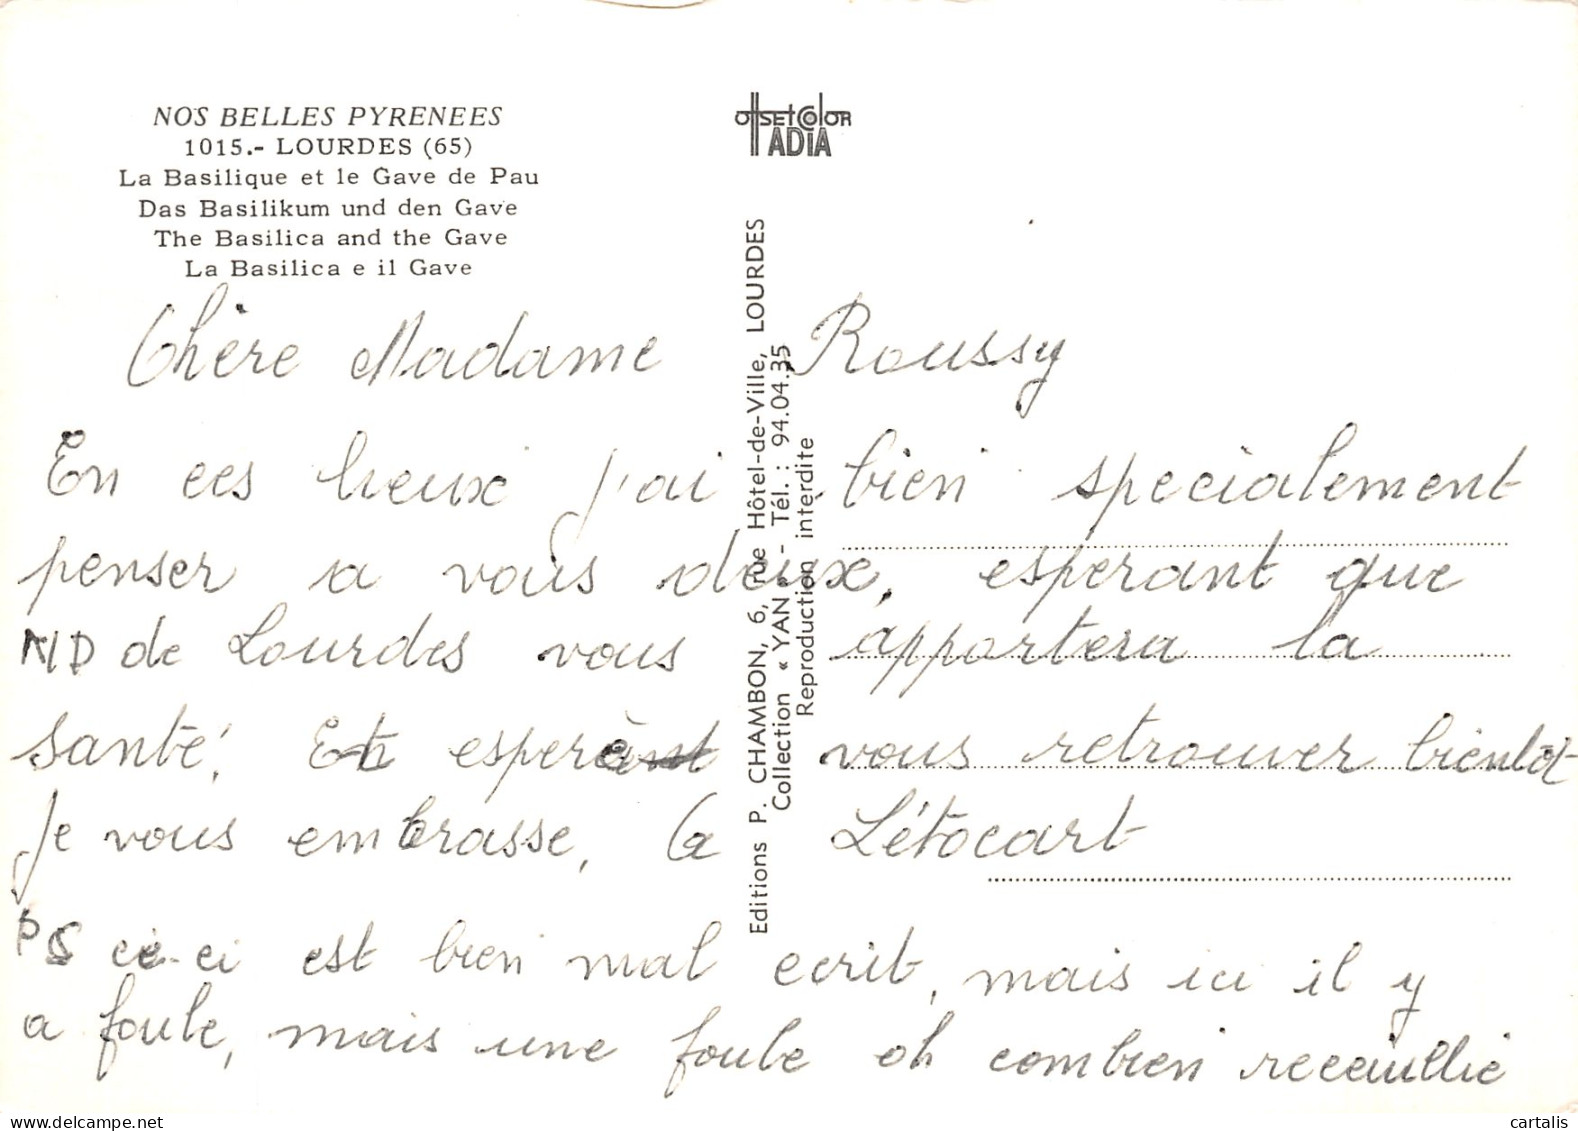 NOS BELLES PYRENEES
1015.- LOURDES (65)
La Basilique et le Gave de Pau
Das Basilikum und den Gave
The Basilica and the Gave
La Basilica e il Gave
offsetColor
ADIA
Editions P. CHAMBON, 6, rue Hôtel-de-Ville, LOURDES
Collection « YAN » - Tél. : 94.04.35
Reproduction interdite
Chère Madame Roussy
En ces lieux j'ai bien specialement
penser a vous deux, esperant que
ND de Lourdes vous apportera la
santé. Et esperant vous retrouver bientôt
Je vous embrasse, G Létocart
PS ceci est bien mal ecrit, mais ici il y
a foule, mais une foule oh combien receuillie
cartalis
delcampe.net